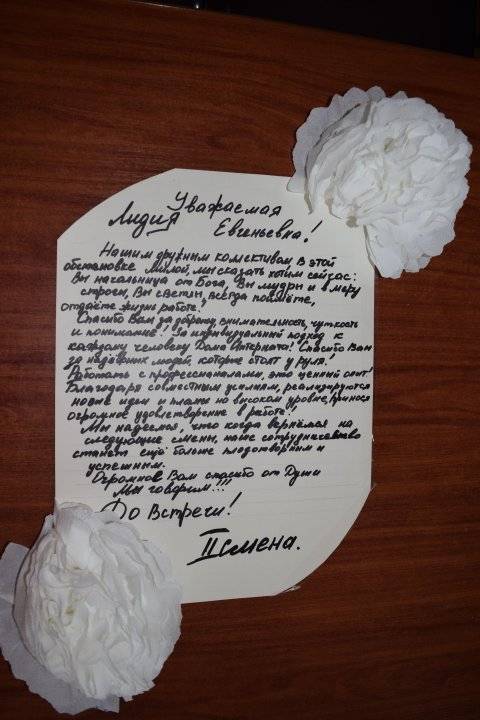 Уважаемая
Лидия Евгеньевна!
Нашим дружным комективам в этой
обстановке милой, мы сказать хотим сейчас:
Вы начальница от Бога, Вы мудры и в меру
строги, Вы светил, всегда поймёте,
отдаёте жизнь работе!
Спасибо Вам за доброту, внимательность, чуткость
и понимание! За индивидуальный подход к
каждому человеку Дома Интерната! Спасибо Вам
за надёжных людей, которые стоят у руля!
Работать с профессионалами, это ценный опыт!
Благодаря совместным усилиям, реализируются
новые идеи и планы но высоком уровне, принося
огромное удовлетворение в работе!
Мы надеемся, что когда вернёмся на
следующие смены, наше сотрудничество
станет ещё больше плодотворным и
успешным.
Огромное Вам спасибо от Души
Мы говорим!!!
До встречи!
II смена.